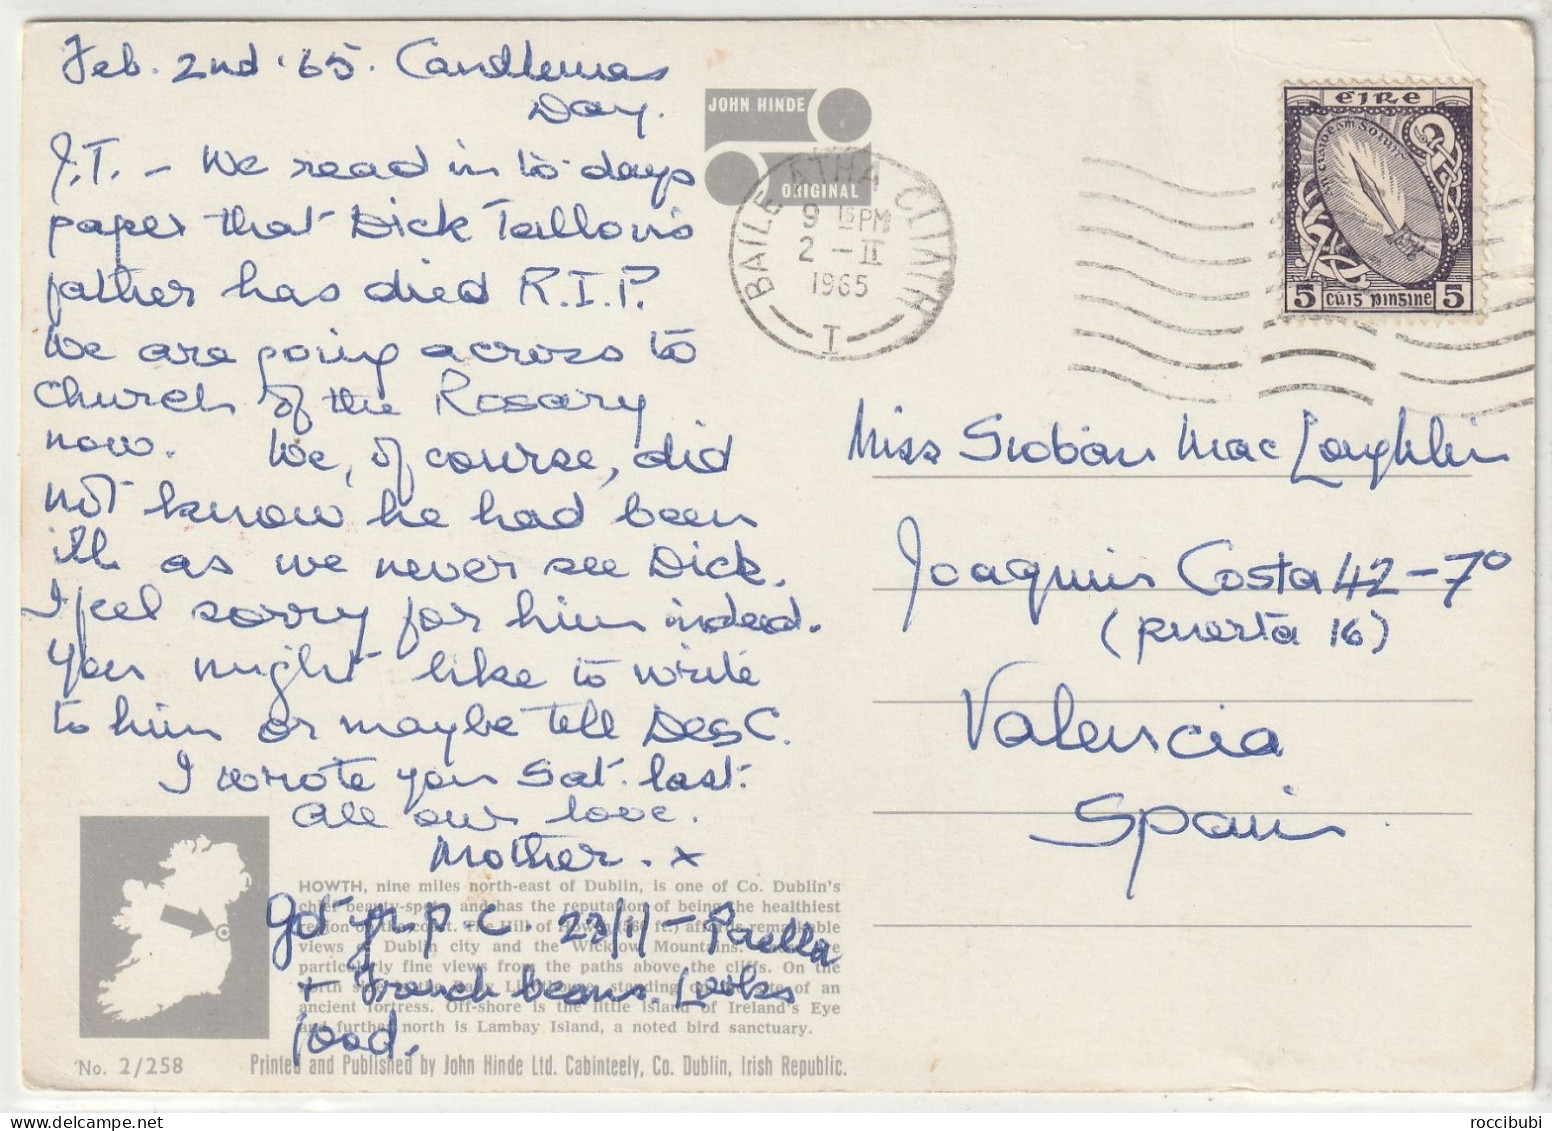 Feb. 2nd '65. Candlemas
Day.
J.T. – We read in to-days
paper that Dick Tallon's
father has died R.I.P.
We are going across to
Church of the Rosary
now. We, of course, did
not know he had been
ill as we never see Dick.
I feel sorry for him indeed.
You might like to write
to him or maybe tell Des C.
I wrote you Sat. last.
All our love.
Mother. x
Got yr P.C. 23/1/ – Paella
+ French beans. Looks
good.
JOHN HINDE
ORIGINAL
BAILE ATHA CLIATH
9 15PM
2 – II
1965
I
éire
5 cúig pingine 5
Miss Siobán Mac Loughlin
Joaquin Costa 42 – 7º
(puerta 16)
Valencia
Spain
HOWTH, nine miles north-east of Dublin, is one of Co. Dublin's
chief beauty-spots and has the reputation of being the healthiest
region on the coast. The Hill of Howth (560 ft.) affords remarkable
views of Dublin city and the Wicklow Mountains.
particularly fine views from the paths above the cliffs. On the
north side is the Baily Lighthouse, standing on the site of an
ancient fortress. Off-shore is the little island of Ireland's Eye
and further north is Lambay Island, a noted bird sanctuary.
No. 2/258
Printed and Published by John Hinde Ltd. Cabinteely, Co. Dublin, Irish Republic.
roccibubi